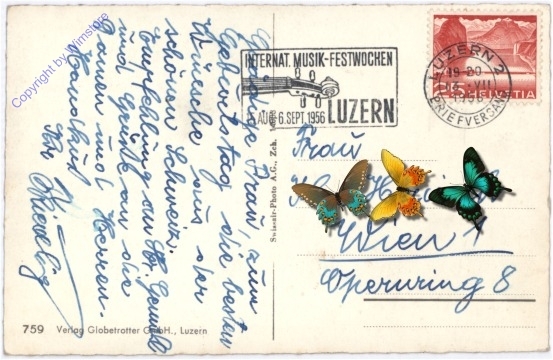 Copyright by Wimstore
Gnädige Frau, zum
Geburtstag die besten
Wünsche aus der
schönen Schweiz.
Empfehlung an H. Gemahl
und Grüße an die
Damen und Herren.
Handkuß
Ihr
759 Verlag Globetrotter GmbH., Luzern
Swissair-Photo A.G., Zch.
INTERNAT. MUSIK-FESTWOCHEN
AUG.-6.SEPT.1956 LUZERN
LUZERN 2
19-20
VII
1956
BRIEFVERSAND
HELVETIA
Frau
Wien 1
Opernring 8